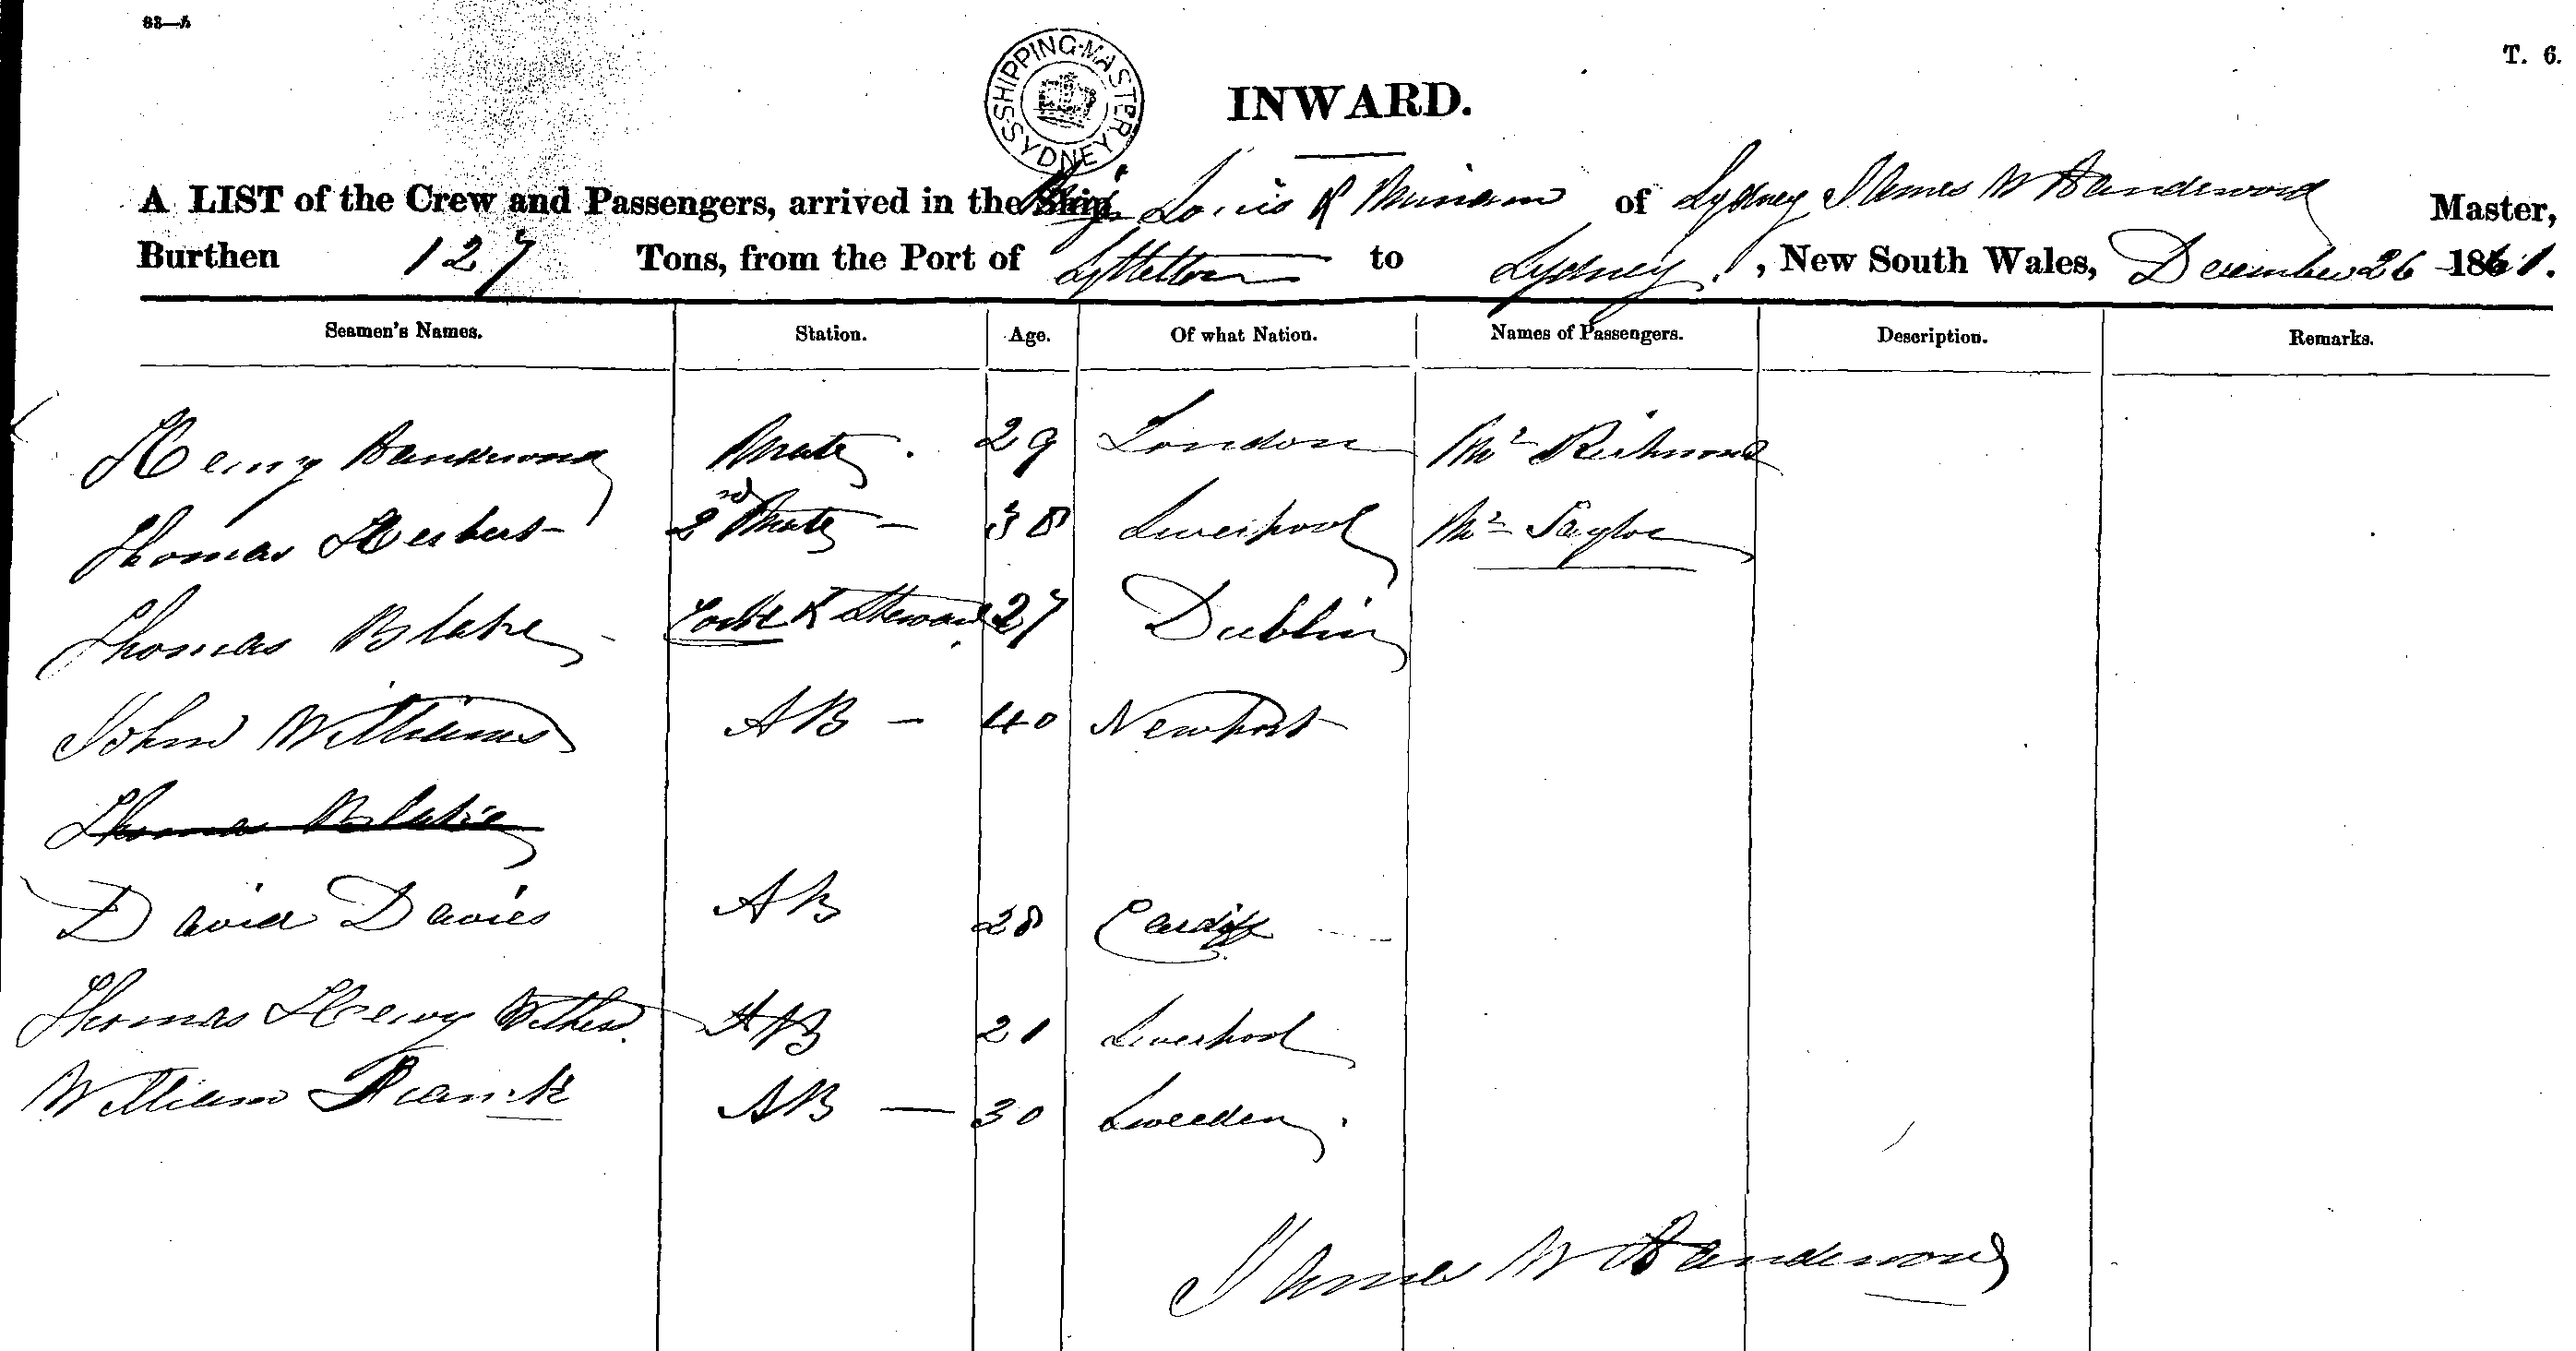 83—A
T. 6.
SHIPPING MASTER SYDNEY
INWARD.
A LIST of the Crew and Passengers, arrived in the Brig Louis & Miriam of Sydney James W Handewood Master,
Burthen 127 Tons, from the Port of Lyttelton to Sydney, New South Wales, December 26 1861.
Seamen's Names. Station. Age. Of what Nation. Names of Passengers. Description. Remarks.
Henry Mate 29 London Mr Richmond
Thomas Herbert 2nd Mate 38 Liverpool Mr Taylor
Thomas Blake Cook & Steward 27 Dublin
John Williams AB 40 Newport
Thomas
David Davies AB 28 Cardiff
Thomas Henry AB 21 Liverpool
William AB 30 Sweeden
James W Handewood